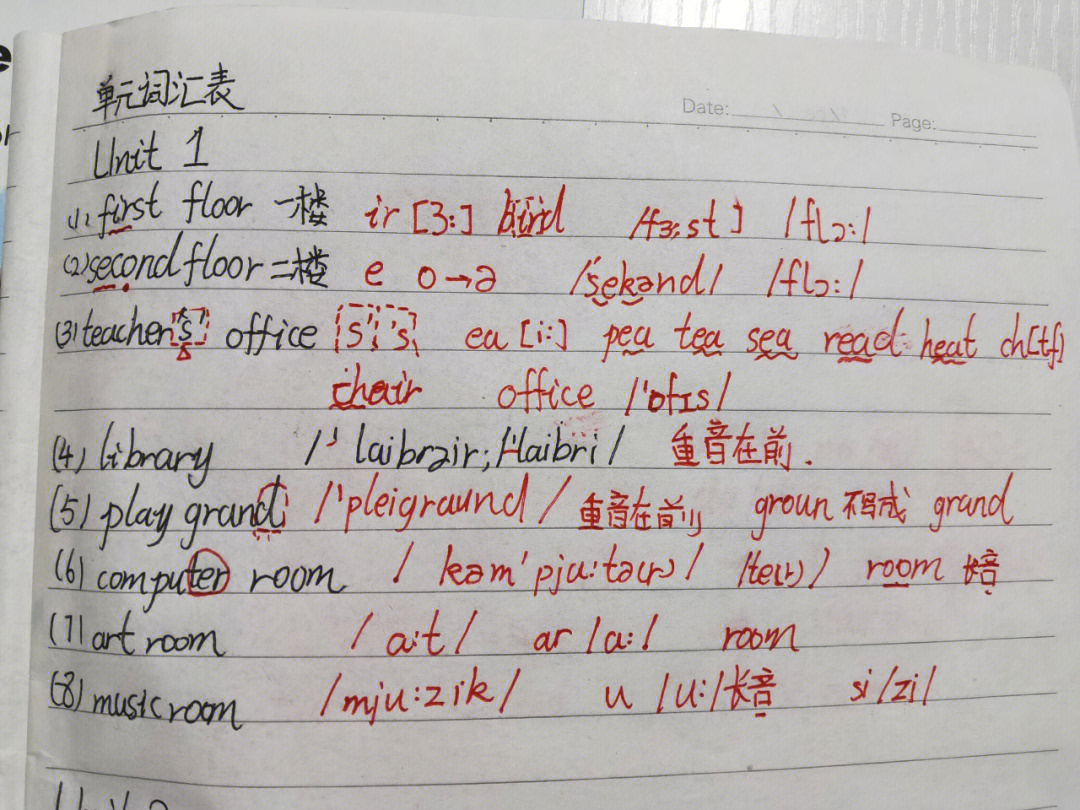 Date: / Page:
单元词汇表
Unit 1
(1) first floor 一楼 ir [3:] bird /f3:st] /flɔ:/
(2) second floor 二楼 e o→ə /'sekənd/ /flɔ:/
(3) teacher's' office s' 's ea [i:] pea tea sea read heat ch[tʃ]
chair office /'ɒfɪs/
(4) library /'laibrəir; 'laibri/ 重音在前.
(5) play grand /'pleigraund/ 重音在前 groun 不写成 grand
(6) computer room /kəm'pju:tə(r)/ /te(r)/ room 长音
(7) art room /a:t/ ar /a:/ room
(8) music room /mju:zik/ u /u:/长音 si /zi/